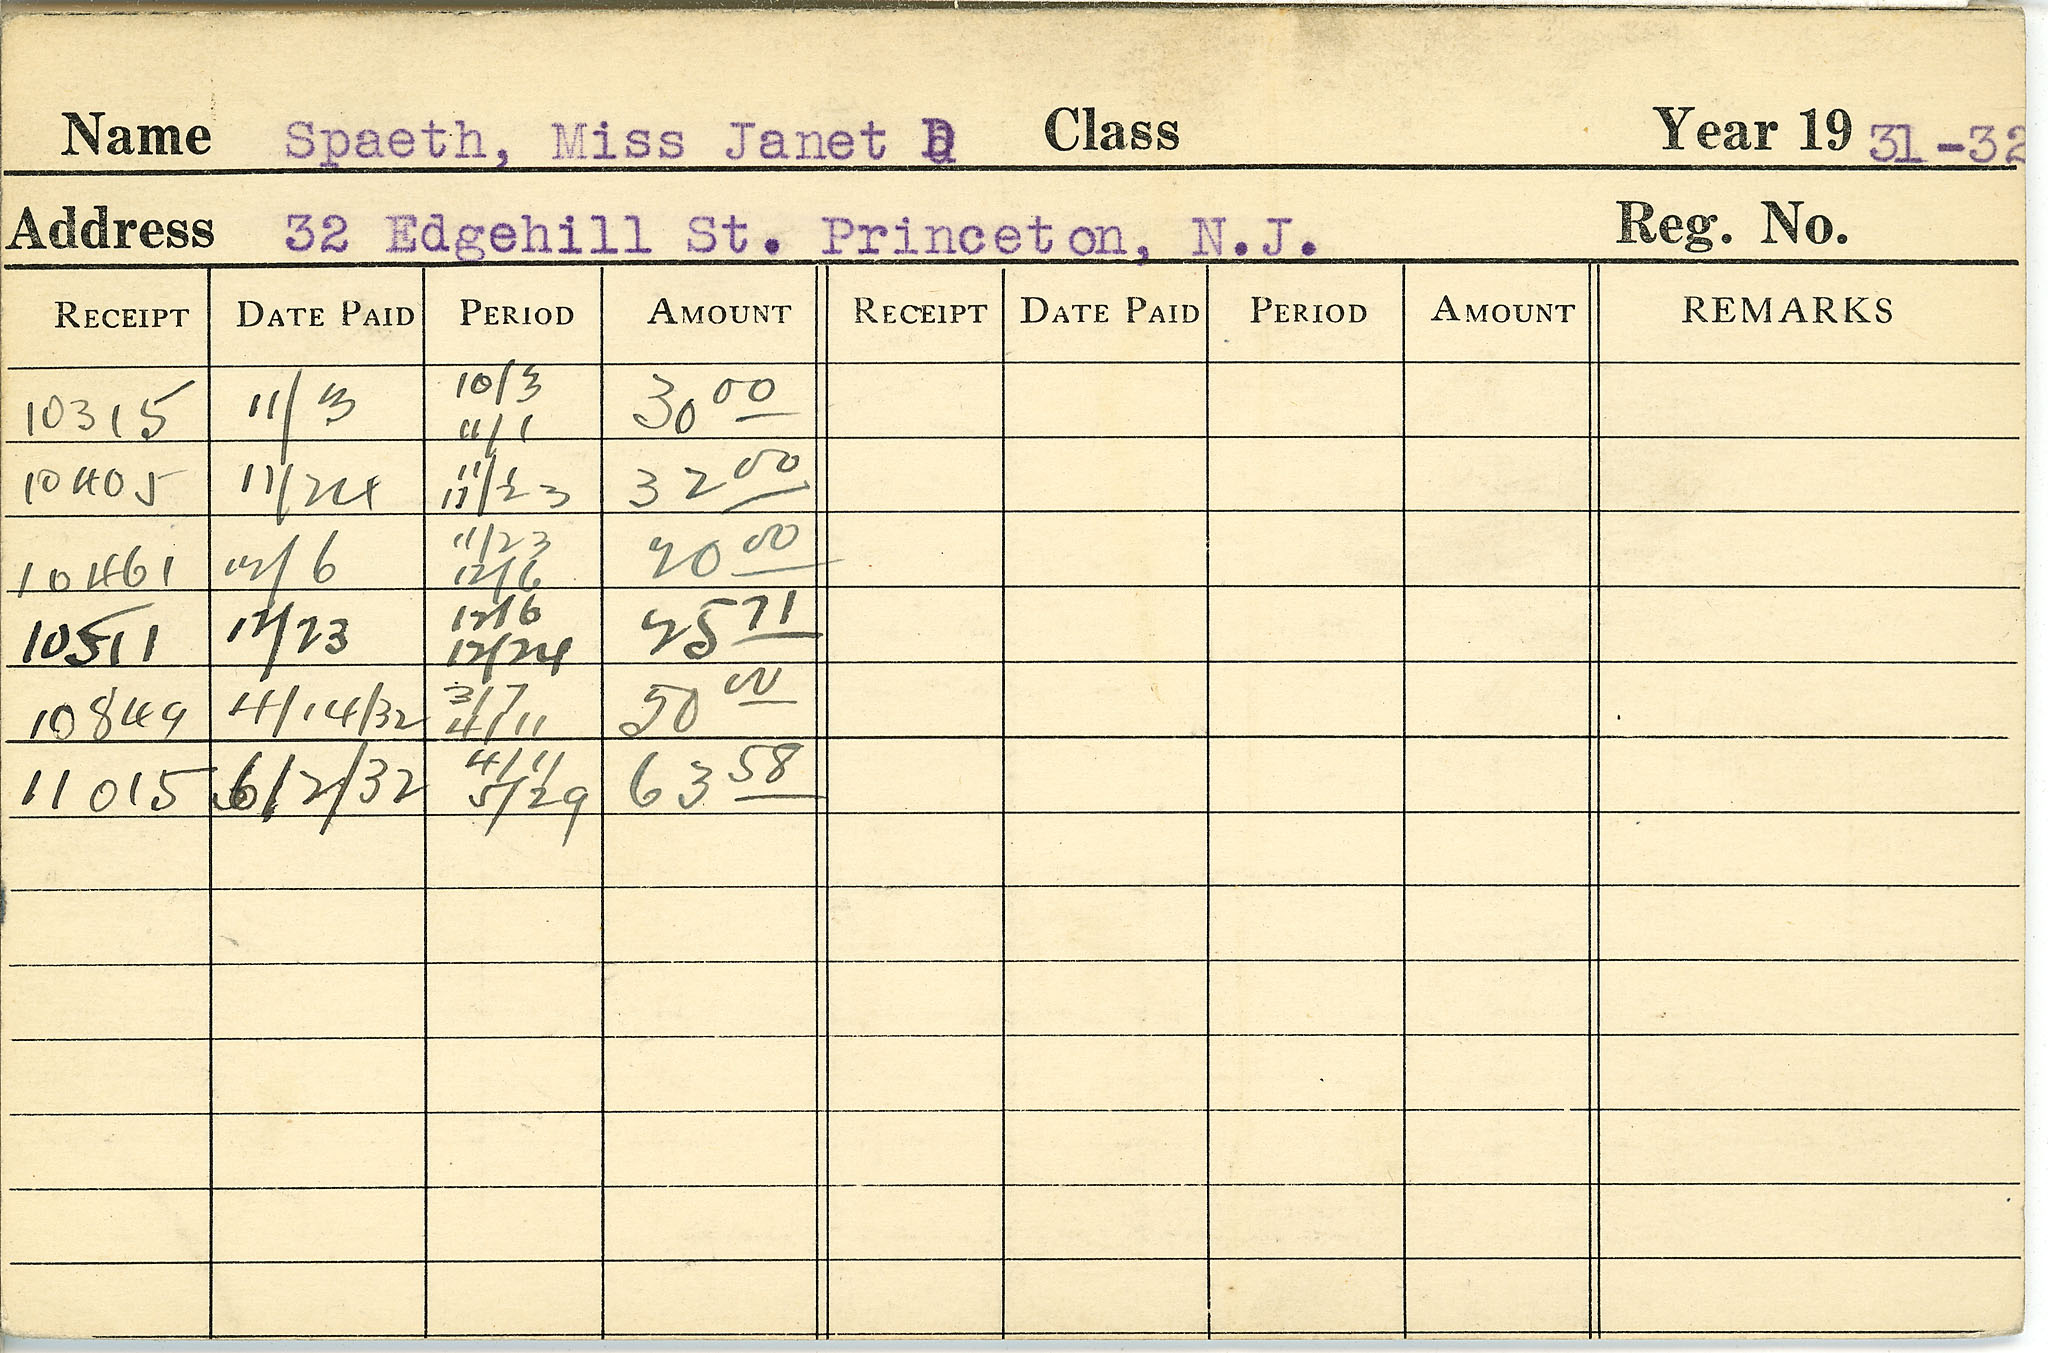 Name Spaeth, Miss Janet Class Year 19 31-32
Address 32 Edgehill St. Princeton, N.J. Reg. No.
RECEIPT DATE PAID PERIOD AMOUNT RECEIPT DATE PAID PERIOD AMOUNT REMARKS
10315 11/3 10/3 11/1 30 00
10405 11/24 11/ 11/23 32 00
10461 12/6 11/23 12/6 20 00
10511 12/23 12/6 12/24 25 71
10849 4/14/32 3/7 4/11 50 00
11015 6/2/32 4/11 5/29 63 58